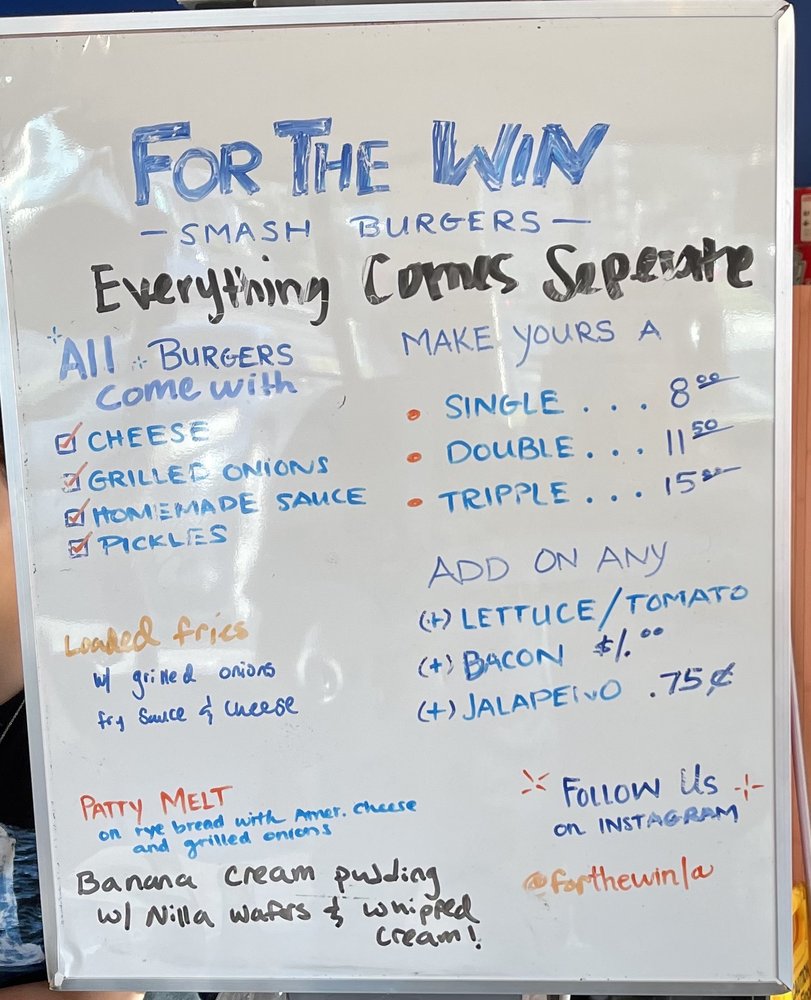 FOR THE WIN
— SMASH BURGERS —
Everything Comes Seperate
All BURGERS
come with
CHEESE
GRILLED ONIONS
HOMEMADE SAUCE
PICKLES
MAKE YOURS A
• SINGLE . . . 8.00
• DOUBLE . . . 11.50
• TRIPPLE . . . 15.00
ADD ON ANY
(+) LETTUCE/TOMATO
(+) BACON $1.00
(+) JALAPEÑO .75¢
Loaded fries
w/ grilled onions
fry sauce & cheese
PATTY MELT
on rye bread with Amer. cheese
and grilled onions
Banana cream pudding
w/ Nilla wafers & whipped
cream!
FOLLOW Us
on INSTAGRAM
@forthewinla